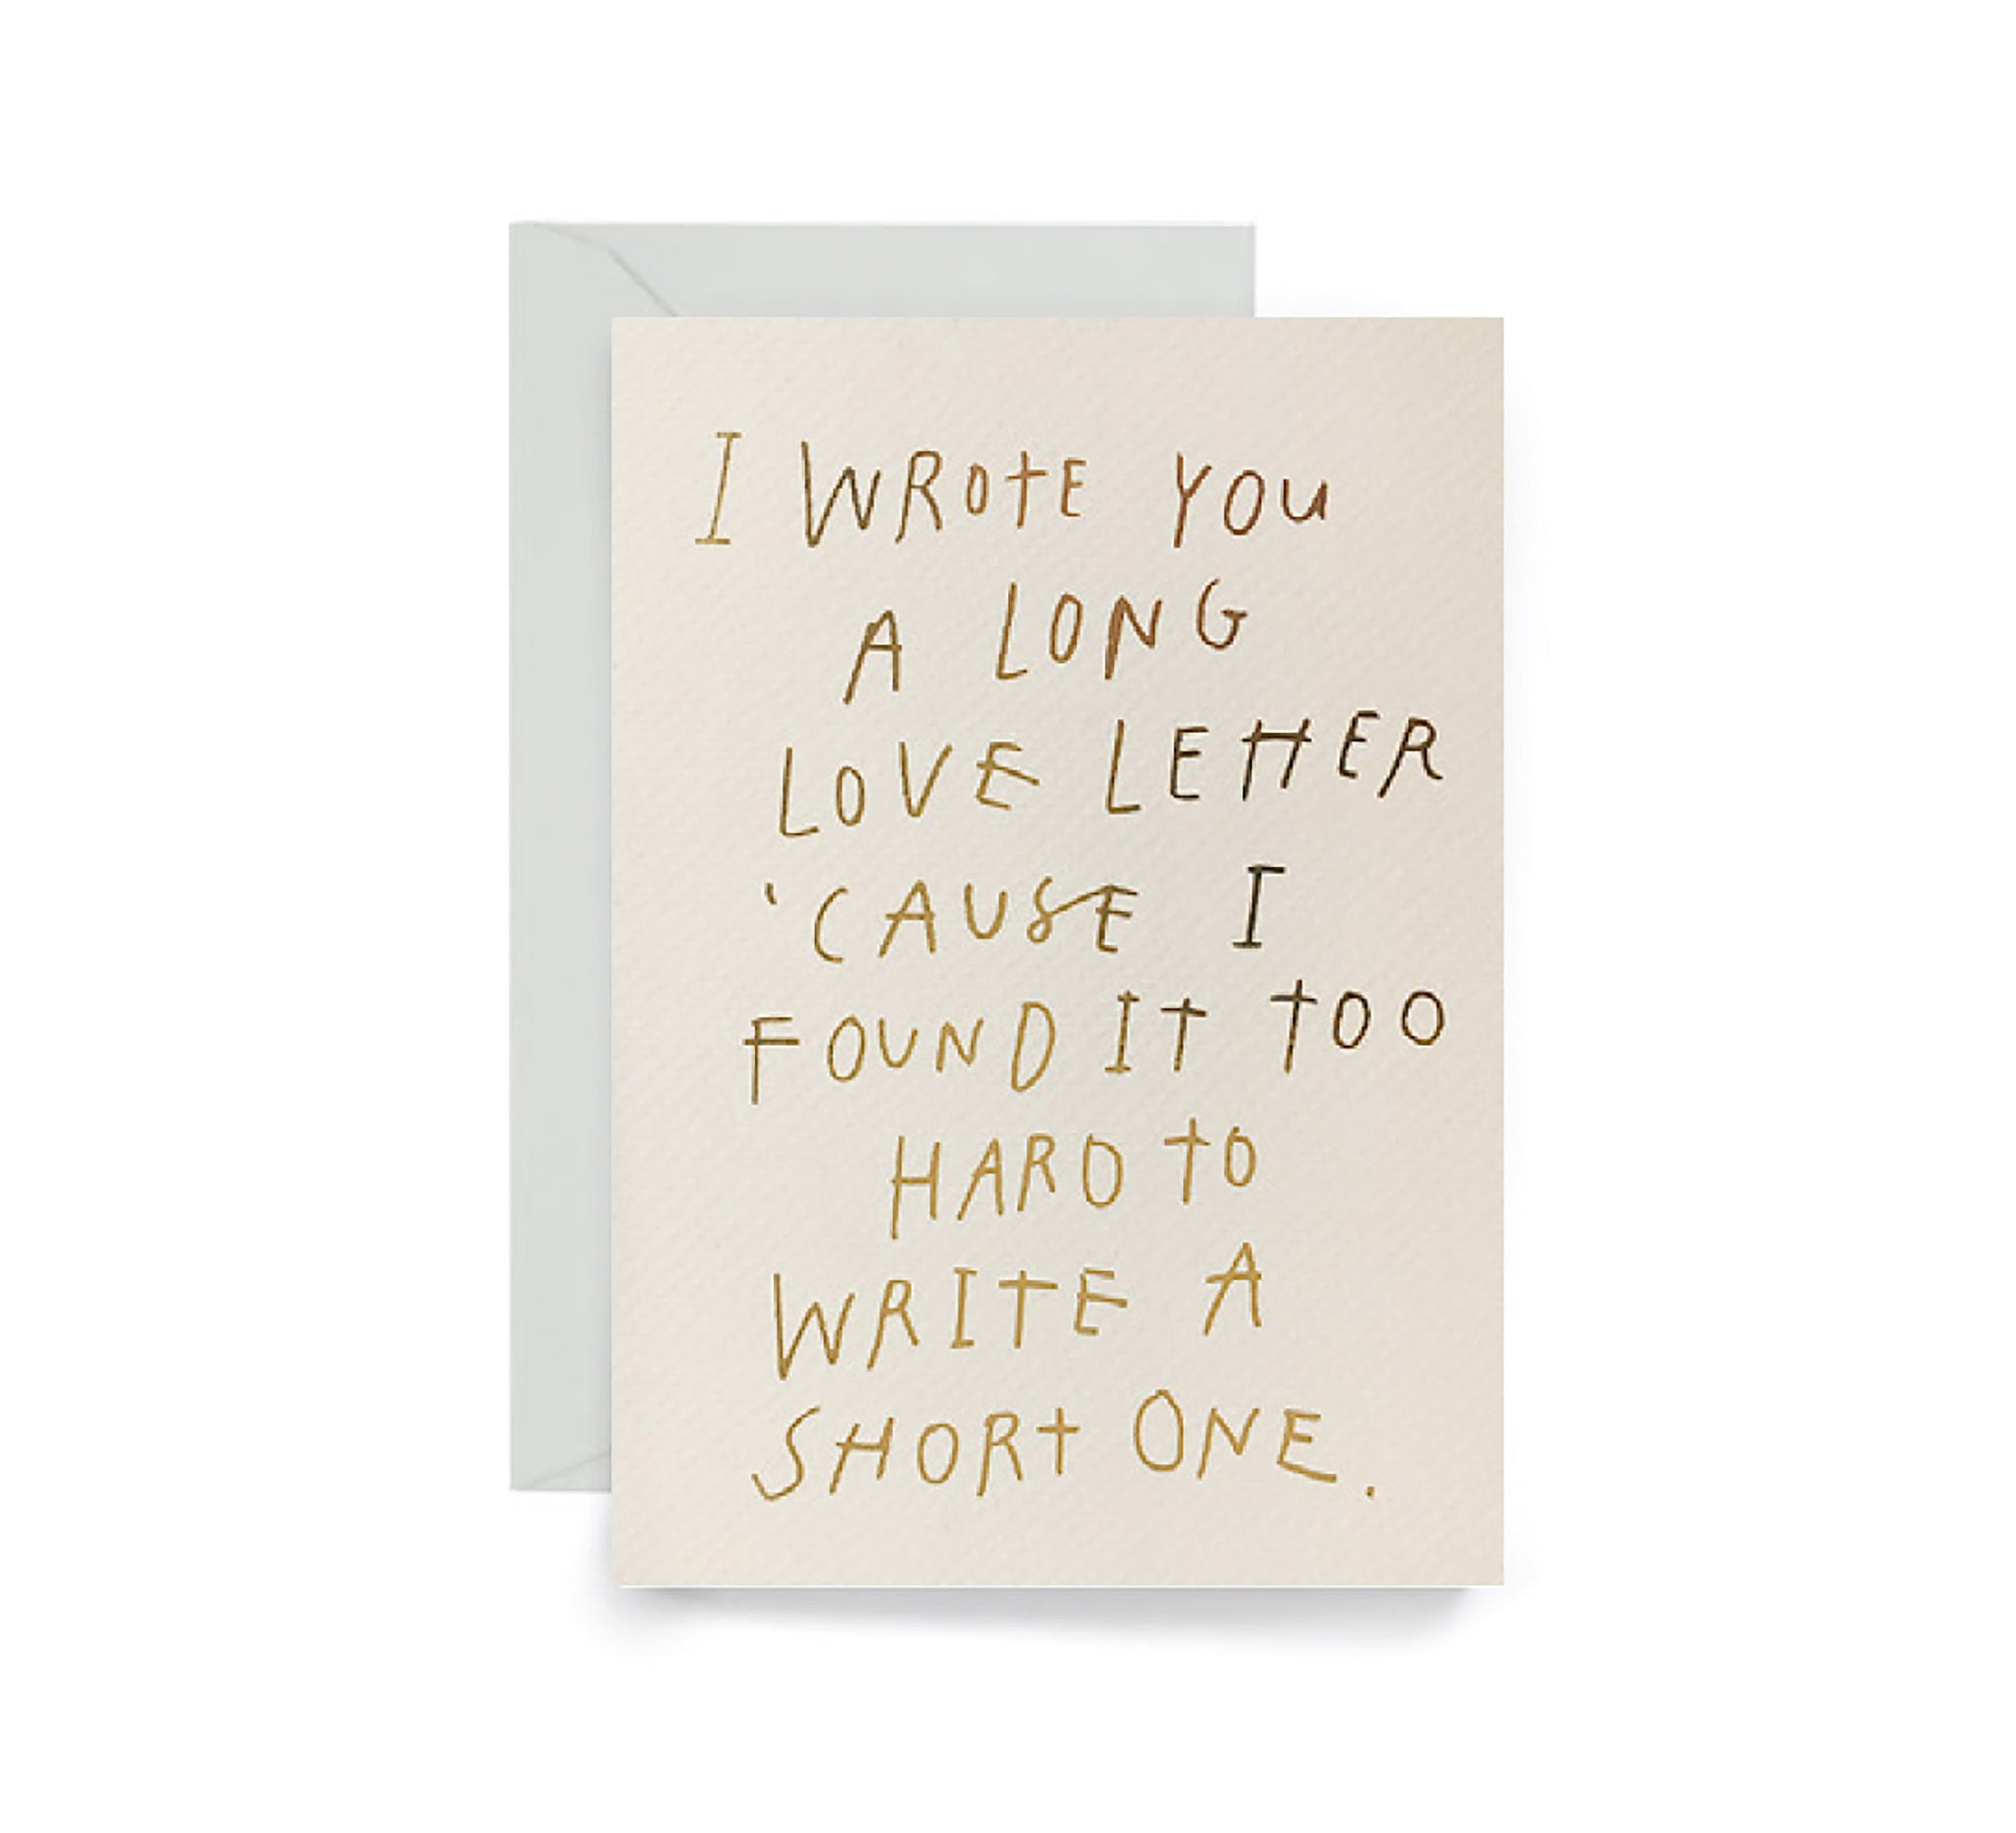 I WROtE YOu
A LONG
LOVE LEttER
'CAUSE I
FOUND It tOO
HARD tO
WRItE A
SHORt ONE.